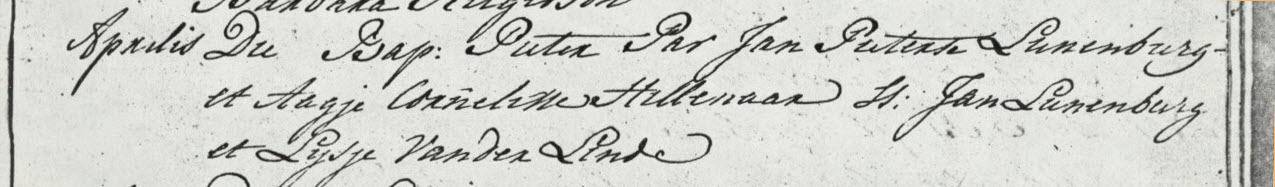 Aprilis Die Bap: Pieter Par Jan Pieterse Lunenburg
et Aagje Cornelisse Hillenaar ss: Jan Lunenburg
et Lijsje Van der Linde